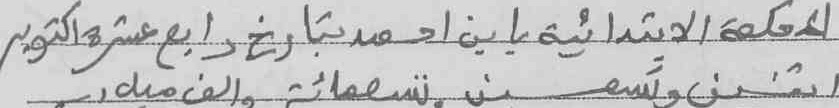 المحكمة الابتدائية باين احمد بتاريخ رابع عشر اكتوبر
اثنين وتسعين وتسعمائة والف ميلادي